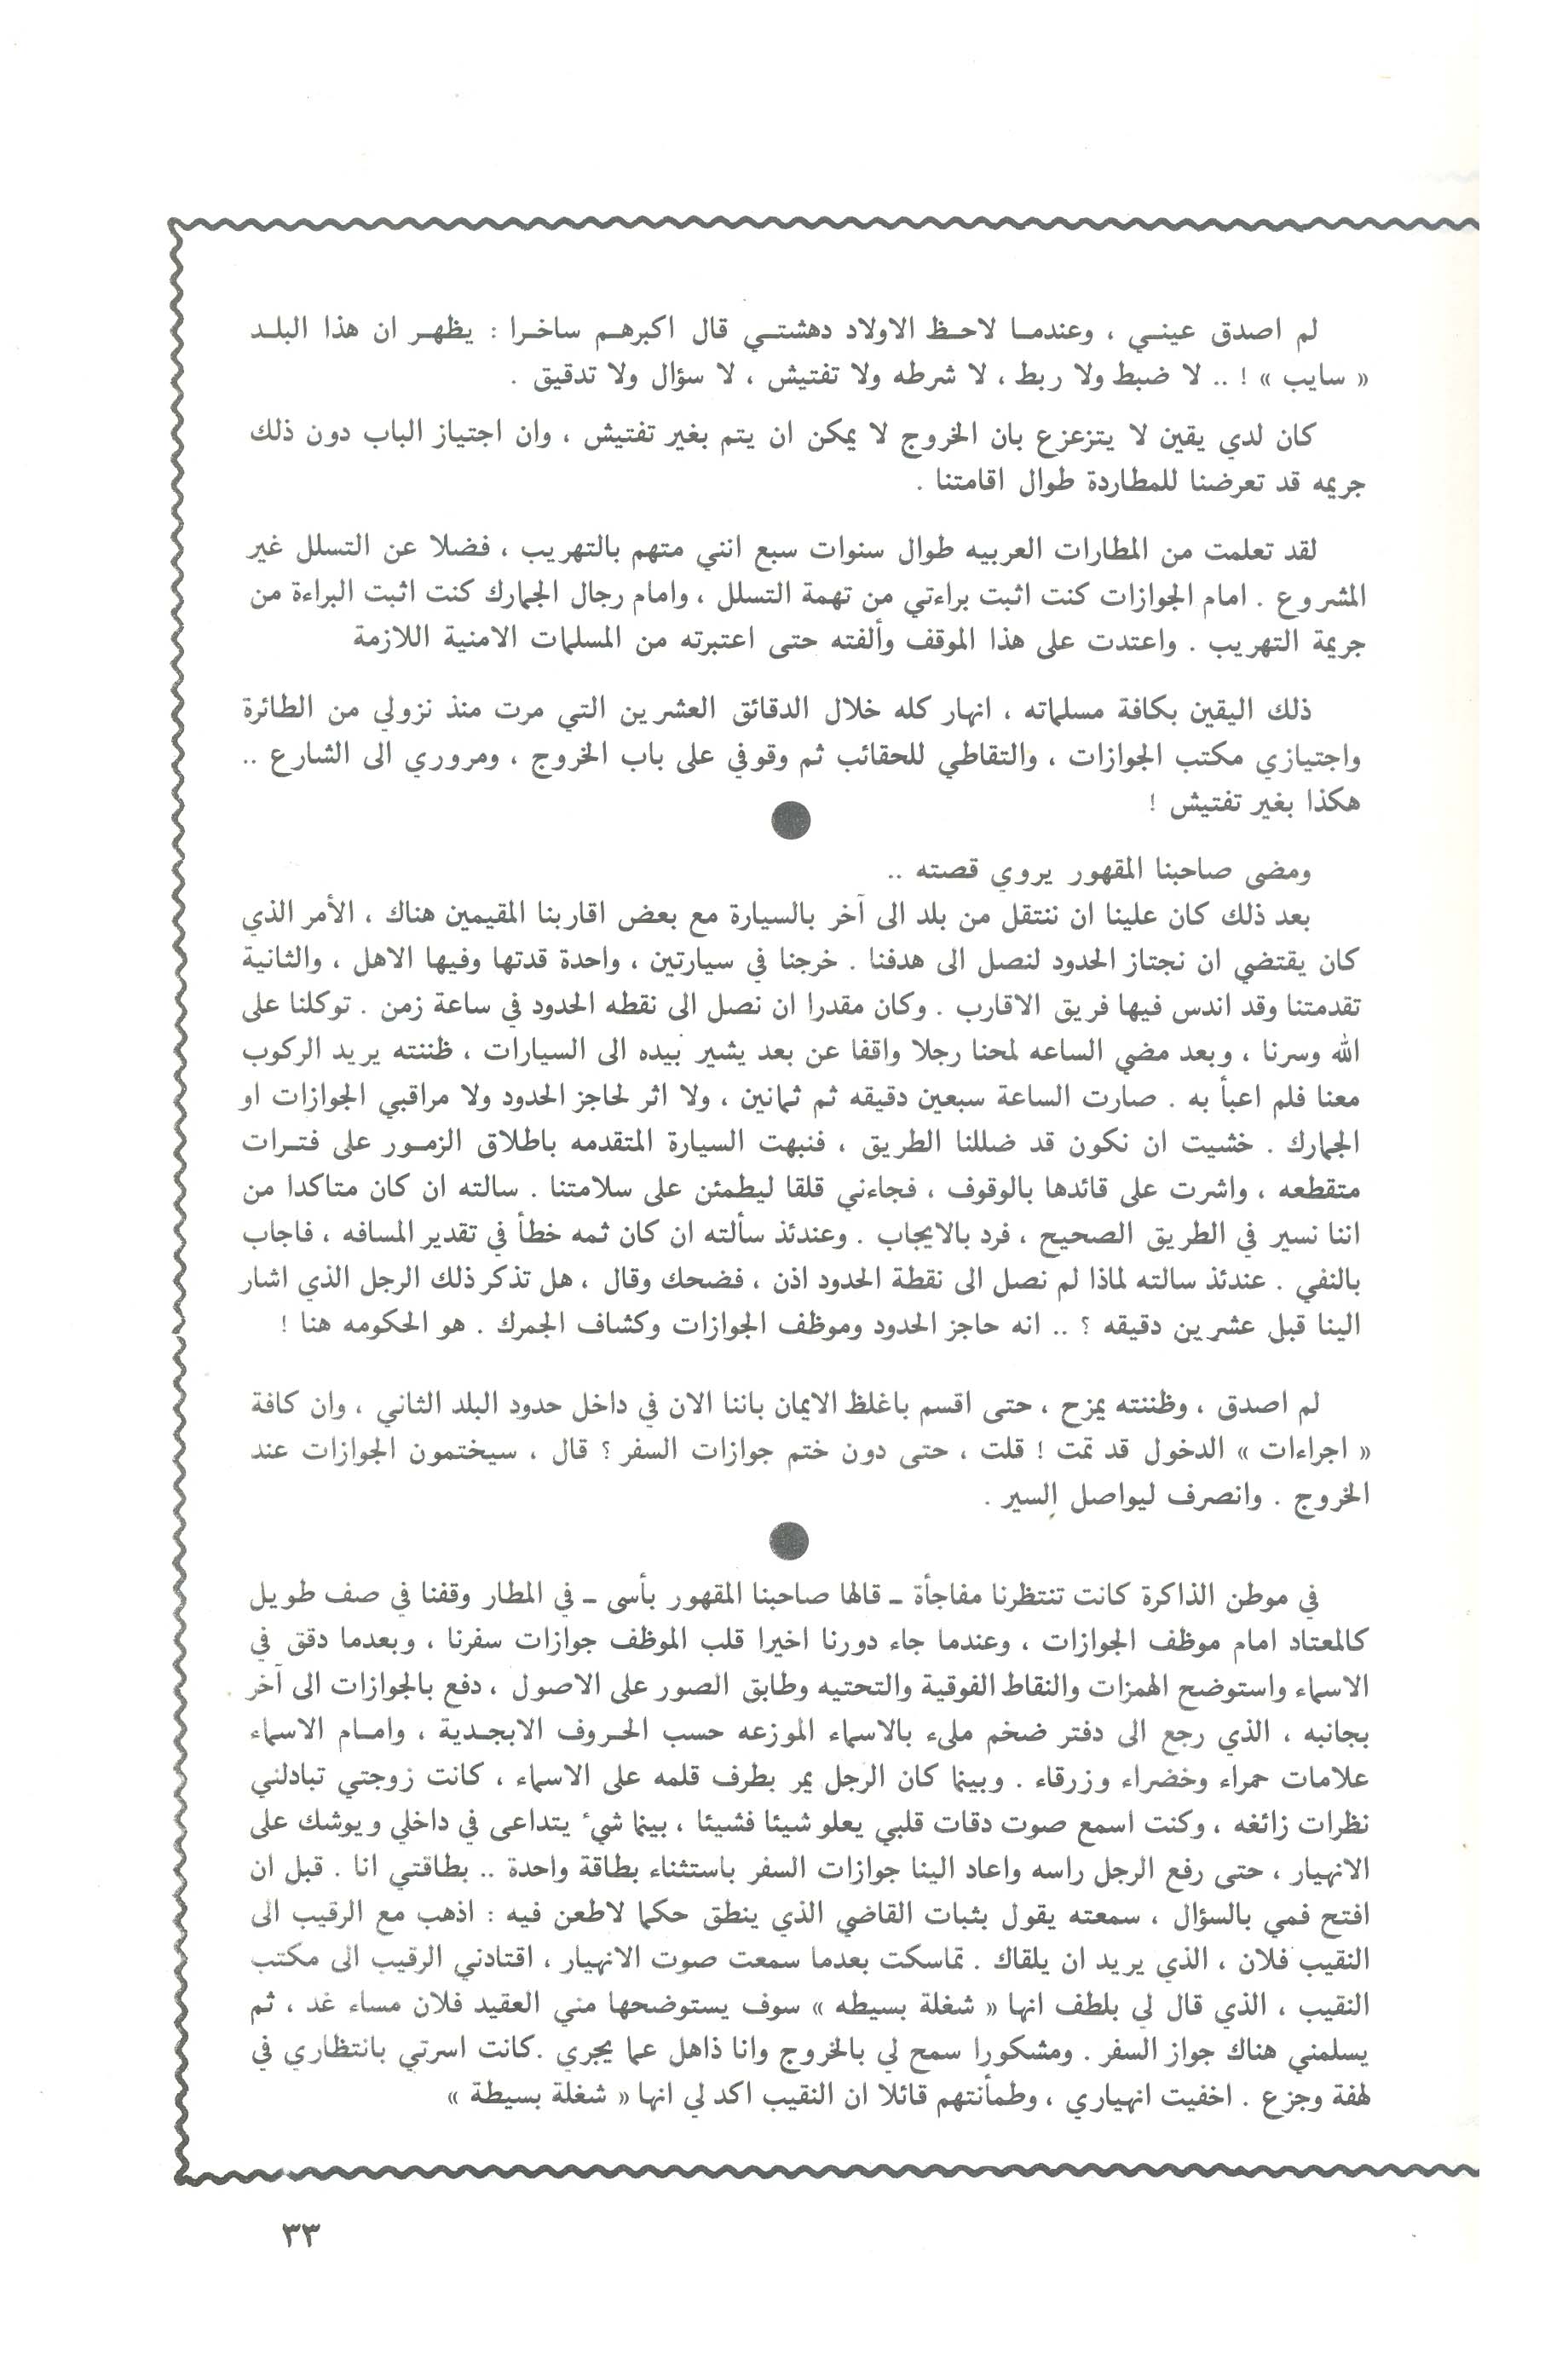 لم اصدق عينـي ، وعندمـا لاحـظ الاولاد دهشتـي قال اكبرهـم ساخـرا : يظهـر ان هذا البلـد
« سايب » ! .. لا ضبط ولا ربط ، لا شرطه ولا تفتيش ، لا سؤال ولا تدقيق .
كان لدي يقين لا يتزعزع بان الخروج لا يمكن ان يتم بغير تفتيش ، وان اجتياز الباب دون ذلك
جريمه قد تعرضنا للمطاردة طوال اقامتنا .
لقد تعلمت من المطارات العربيه طوال سنوات سبع انني متهم بالتهريب ، فضلا عن التسلل غير
المشروع . امام الجوازات كنت اثبت براءتي من تهمة التسلل ، وامام رجال الجمارك كنت اثبت البراءة من
جريمة التهريب . واعتدت على هذا الموقف وألفته حتى اعتبرته من المسلمات الامنية اللازمة
ذلك اليقين بكافة مسلماته ، انهار كله خلال الدقائق العشرين التي مرت منذ نزولي من الطائرة
واجتيازي مكتب الجوازات ، والتقاطي للحقائب ثم وقوفي على باب الخروج ، ومروري الى الشارع ..
هكذا بغير تفتيش !
ومضى صاحبنا المقهور يروي قصته ..
بعد ذلك كان علينا ان ننتقل من بلد الى آخر بالسيارة مع بعض اقاربنا المقيمين هناك ، الأمر الذي
كان يقتضي ان نجتاز الحدود لنصل الى هدفنا . خرجنا في سيارتين ، واحدة قدتها وفيها الاهل ، والثانية
تقدمتنا وقد اندس فيها فريق الاقارب . وكان مقدرا ان نصل الى نقطه الحدود في ساعة زمن . توكلنا على
الله وسرنا ، وبعد مضي الساعه لمحنا رجلا واقفا عن بعد يشير بيده الى السيارات ، ظننته يريد الركوب
معنا فلم اعبأ به . صارت الساعة سبعين دقيقه ثم ثمانين ، ولا اثر لحاجز الحدود ولا مراقبي الجوازات او
الجمارك . خشيت ان نكون قد ضللنا الطريق ، فنبهت السيارة المتقدمه باطلاق الزمـور على فتـرات
متقطعه ، واشرت على قائدها بالوقوف ، فجاءني قلقا ليطمئن على سلامتنا . سالته ان كان متاكدا من
اننا نسير في الطريق الصحيح ، فرد بالايجاب . وعندئذ سألته ان كان ثمه خطأ في تقدير المسافه ، فاجاب
بالنفي . عندئذ سالته لماذا لم نصل الى نقطة الحدود اذن ، فضحك وقال ، هل تذكر ذلك الرجل الذي اشار
الينا قبل عشرين دقيقه ؟ .. انه حاجز الحدود وموظف الجوازات وكشاف الجمرك . هو الحكومه هنا !
لم اصدق ، وظننته يمزح ، حتى اقسم باغلظ الايمان باننا الان في داخل حدود البلد الثاني ، وان كافة
« اجراءات » الدخول قد تمت ! قلت ، حتى دون ختم جوازات السفر ؟ قال ، سيختمون الجوازات عند
الخروج . وانصرف ليواصل السير .
في موطن الذاكرة كانت تنتظرنا مفاجأة ـ قالها صاحبنا المقهور بأسى ـ في المطار وقفنا في صف طويل
كالمعتاد امام موظف الجوازات ، وعندما جاء دورنا اخيرا قلب الموظف جوازات سفرنا ، وبعدما دقق في
الاسماء واستوضح الهمزات والنقاط الفوقية والتحتيه وطابق الصور على الاصول ، دفع بالجوازات الى آخر
بجانبه ، الذي رجع الى دفتر ضخم مليء بالاسماء الموزعه حسب الحـروف الابجـدية ، وامـام الاسماء
علامات حمراء وخضراء وزرقاء . وبينما كان الرجل يمر بطرف قلمه على الاسماء ، كانت زوجتي تبادلني
نظرات زائغه ، وكنت اسمع صوت دقات قلبي يعلو شيئا فشيئا ، بينما شيء يتداعى في داخلي ويوشك على
الانهيار ، حتى رفع الرجل راسه واعاد الينا جوازات السفر باستثناء بطاقة واحدة .. بطاقتي انا . قبل ان
افتح فمي بالسؤال ، سمعته يقول بثبات القاضي الذي ينطق حكما لاطعن فيه : اذهب مع الرقيب الى
النقيب فلان ، الذي يريد ان يلقاك . تماسكت بعدما سمعت صوت الانهيار ، اقتادني الرقيب الى مكتب
النقيب ، الذي قال لي بلطف انها « شغلة بسيطه » سوف يستوضحها مني العقيد فلان مساء غد ، ثم
يسلمني هناك جواز السفر . ومشكورا سمح لي بالخروج وانا ذاهل عما يجري .كانت اسرتي بانتظاري في
لهفة وجزع . اخفيت انهياري ، وطمأنتهم قائلا ان النقيب اكد لي انها « شغلة بسيطة »
٣٣